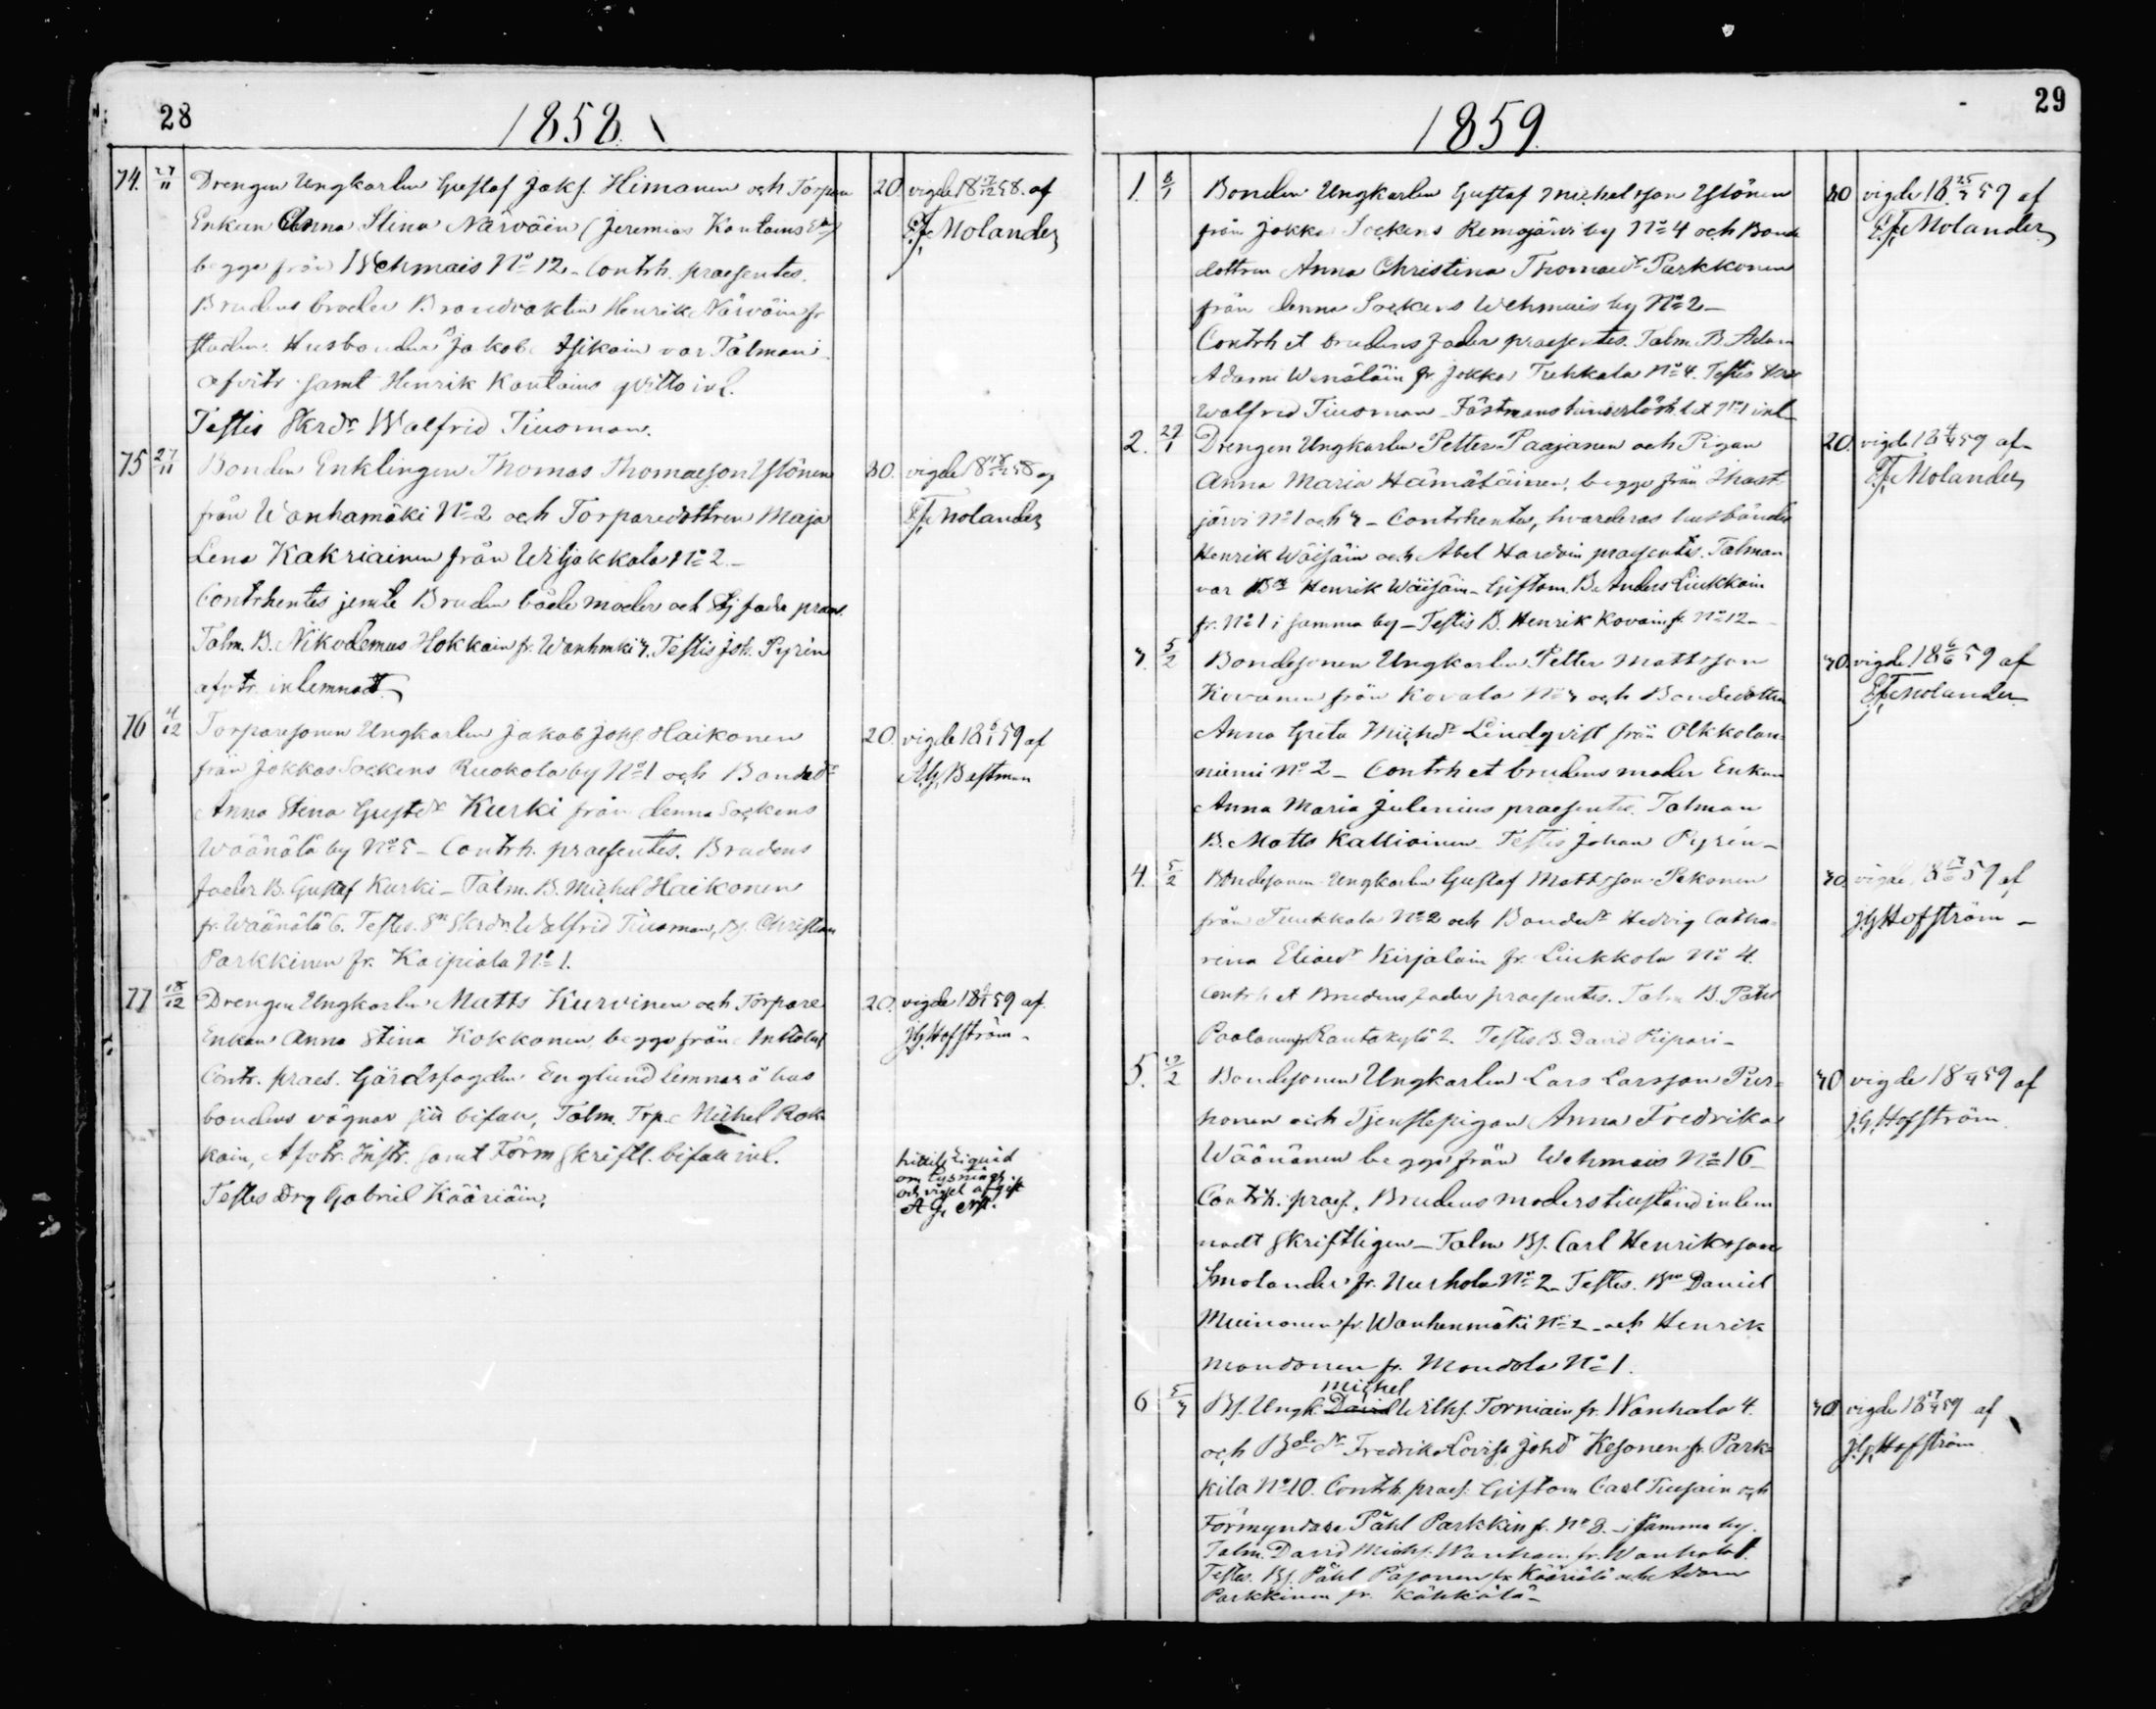 28
1858.
74. 27/11 Drengen Ungkarlen Gustaf Jaks. Himanen och Torpare
Enkan Anna Stina Närväin (Jeremias Kautains Ea)
begge från Wehmais No 12. Contrh. praesentes.
Brudens broder Brandvakten Henrik Närväin fr
staden. Husbonden Jakob Itikain var Talman
afvitr. samt Henrik Kautains qvitto inl.
Testis Skrdr Walfrid Tiusman.
20. vigde 18 58. af
Molander
75 27/11 Bonden Enklingen Thomas Thomaeson Ylönen
från Wanhamäki No 2 och Torparedottren Maja
Lena Kakriainen från Wiljakkala No 2.
Contrhentes jemte Bruden både moder och Stj fader praes.
Talm. B. Nikodemus Hokkain fr. Wanhmki 3. Testis Joh. Pyrén
afvtr. inlemnadt.
30. vigde 18 58 af
Molander
76 4/12 Torparesonen Ungkarlen Jakob Johs. Haikonen
från Jokkas Sockens Ruokola by No 1 och Bondedr
Anna Stina Gustdr Kurki från denna Sockens
Wäänälä by No 5 - Contrh. praesentes. Brudens
fader B. Gustaf Kurki - Talm. B. Michel Haikonen
fr. Wäänälä 6. Testes. Skrdr. Walfrid Tiusman, Bs. Christian
Parkkinen fr. Kaipiala No 1.
20. vigde 18 6/1 59 af
Bastman
77 18/12 Drengen Ungkarlen Matts Kurvinen och Torpare
Enkan Anna Stina Kokkonen, begge från
Contr. praes. Gårdsfogden Englund lemnar å hus
bondens vägnar sitt bifall, Talm. Trp. Michel Rok
kain, Afvtr. Instr. samt Förm skriftl. bifall inl.
Testes Drg Gabriel Kääriäin.
20. vigde 18 59 af
J.G. Hofström -
hittils Liqvid
om lysnings
och vigsel afgift
29
1859.
1. 8/1 Bonden Ungkarlen Gustaf Michelsson Ylönen
från Jokkas Sockens Remojärvi by No 4 och Bonde
dottren Anna Christina Thomaedr Parkkonen
från denna Sockens Wehmais by No 2 -
Contrh et brudens fader praesentes. Talm. B. Adam
Adami Wenäläin fr. Jokkas No 4. Testis
Walfrid Tiusman - Fästmans hinderlöshet No 1 inl
30 vigde 18 59 af
Molander
2. 29/1 Drengen Ungkarlen Petter Paajanen och Pigan
Anna Maria Hämäläinen, begge från Ihast
järvi No 1 och 3 - Contrhentes, hvarderas husbönder
Henrik Wäisäin och Abel Hardvin praesentes. Talman
var Bn Henrik Wäisäin - Giftom. B. Anders Liukkain
fr. No 1 i samma by - Testis B. Henrik Kovain fr. No 12 -
20. vigde 18 59 af
Molander
3. 5/2 Bondesonen Ungkarlen Petter Mattsson
Kovanen från Kovala No 3 och Bondedotter
Anna Greta Michdr Lindqvist från Olkkolan-
niemi No 2 - Contrh et brudens moder Enkan
Anna Maria Julenius praesentes. Talman
B. Matts Kallioinen - Testis Johan Pyrén -
30. vigde 18 59 af
Molander
4. 5/2 Bondesonen Ungkarlen Gustaf Mattsson Pekonen
från Tuukkala No 2 och Bondedr Hedvig Catha-
rina Eliaedr Kirjalain fr. Liukkola No 4.
Contrh et Brudens fader praesentes. Talm B. Påhl
Paalanen fr Rantakylä 2. Testis B. David Piipari -
30. vigde 18 59 af
J.G. Hofström -
5. 12/2 Bondesonen Ungkarlen Lars Larsson Pur-
honen och Tjenstepigan Anna Fredrika
Wäänänen begge från Wehmais No 16 -
Contrh. praes. Brudens moders tillstånd inlem
nadt skriftligen - Talm Bs. Carl Henriksson
Smolander fr. Nurhola No 2 - Testes. Bn Daniel
Muinonen fr. Wanhenmäki No 2 - och Henrik
Mandonen fr. Mandola No 1.
30 vigde 18 59 af
J.G. Hofström.
6 5/3 Bs. Ungk. David Michel Wilhs. Torniain fr. Wanhala 4.
och Bdedr Fredrika Lovisa Johdr Kesonen fr. Park-
kila No 10. Contrh. praes. Giftom Carl Tiusain och
Förmyndare Påhl Parkkin fr. No 8. - i samma by.
Talm. David Michs. Wanhain fr. Wanhala 1.
Testes. Bs. Påhl Pasonen fr. Kääriälä och Adam
Parkkinen fr. Kähkölä -
30 vigde 18 59 af
J.G. Hofström